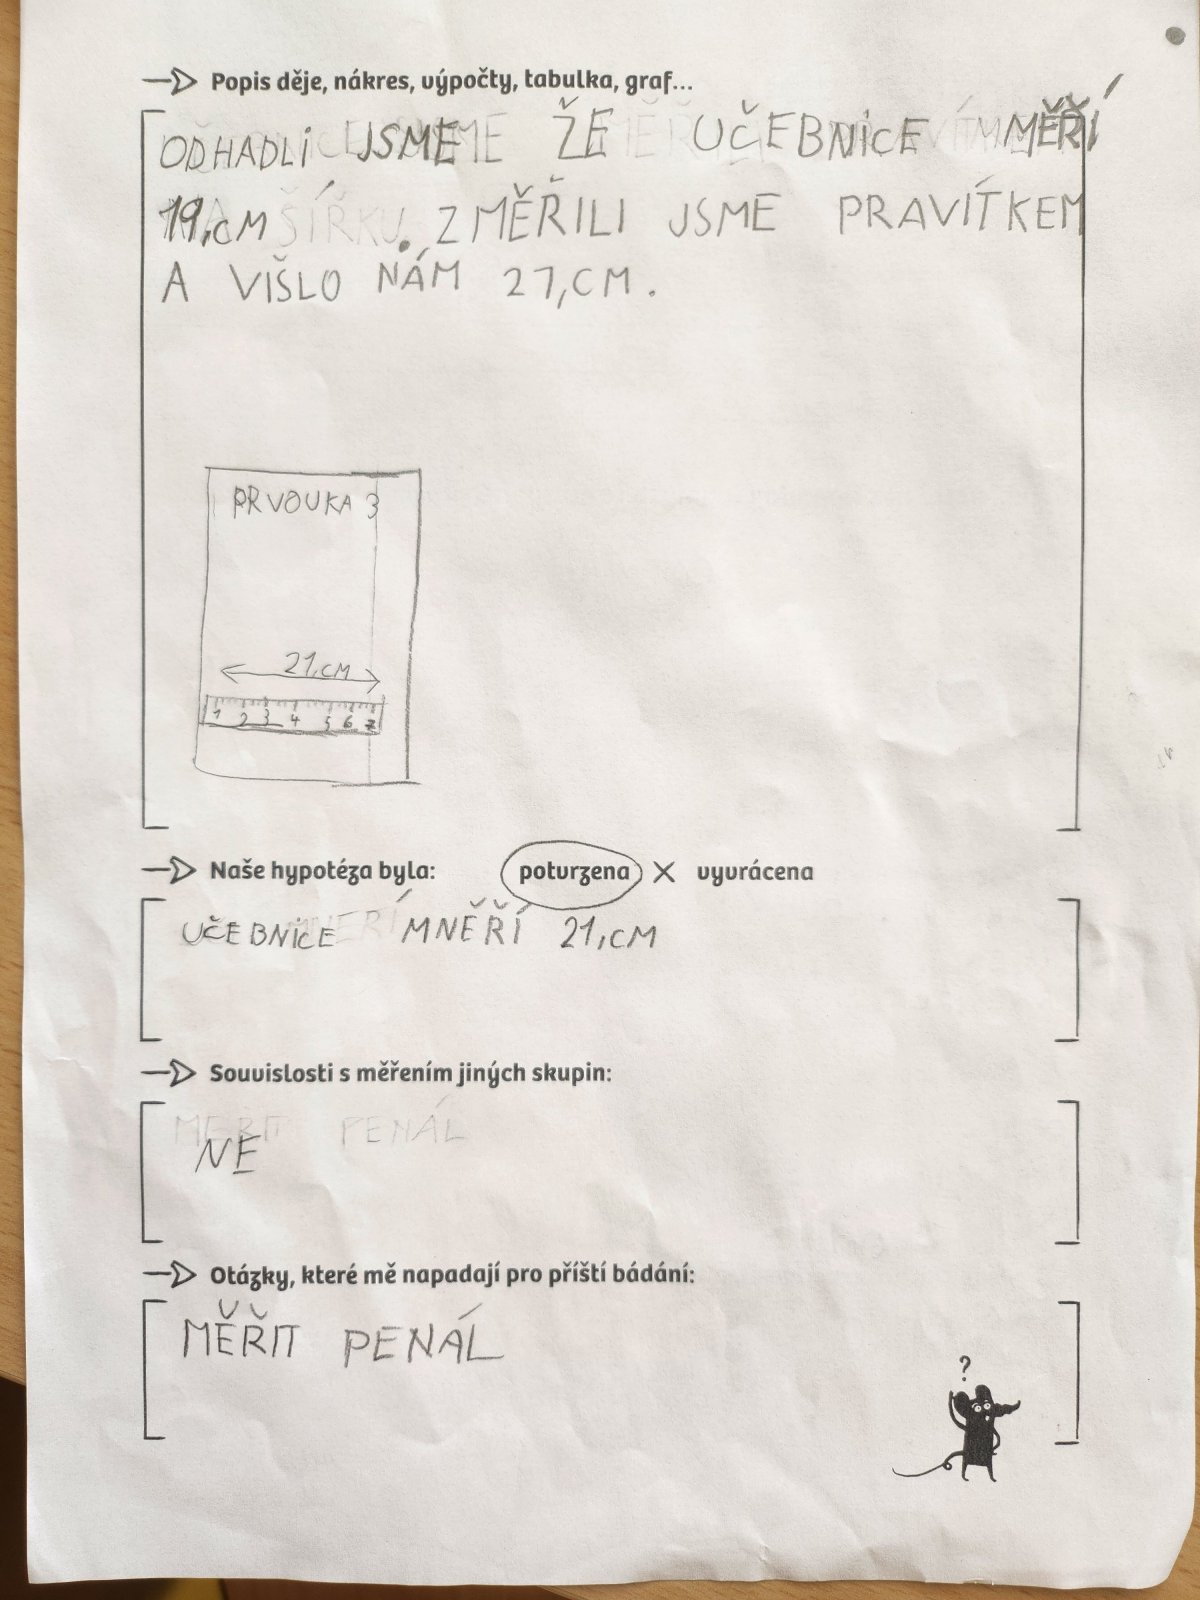 Popis děje, nákres, výpočty, tabulka, graf...
ODHADLI JSME ŽE UČEBNICE MĚŘÍ
19,CM ŠÍŘKU. ZMĚŘILI JSME PRAVÍTKEM
A VIŠLO NÁM 21,CM.
PRVOUKA 3
21,CM
1 2 3 4 5 6 7
Naše hypotéza byla: potvrzena × vyvrácena
UČEBNICE MNĚŘÍ 21,CM
Souvislosti s měřením jiných skupin:
MĚŘIT PENÁL
NE
Otázky, které mě napadají pro příští bádání:
MĚŘIT PENÁL
?